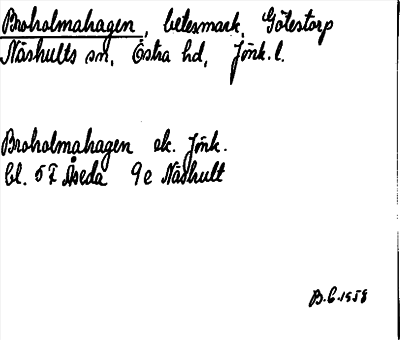 Broholmahagen, betesmark, Götestorp
Näshults sn, Östra hd, Jönk.l.
Broholmahagen ek. Jönk.
bl. 57 Åseda 9e Näshult
B.E.1958